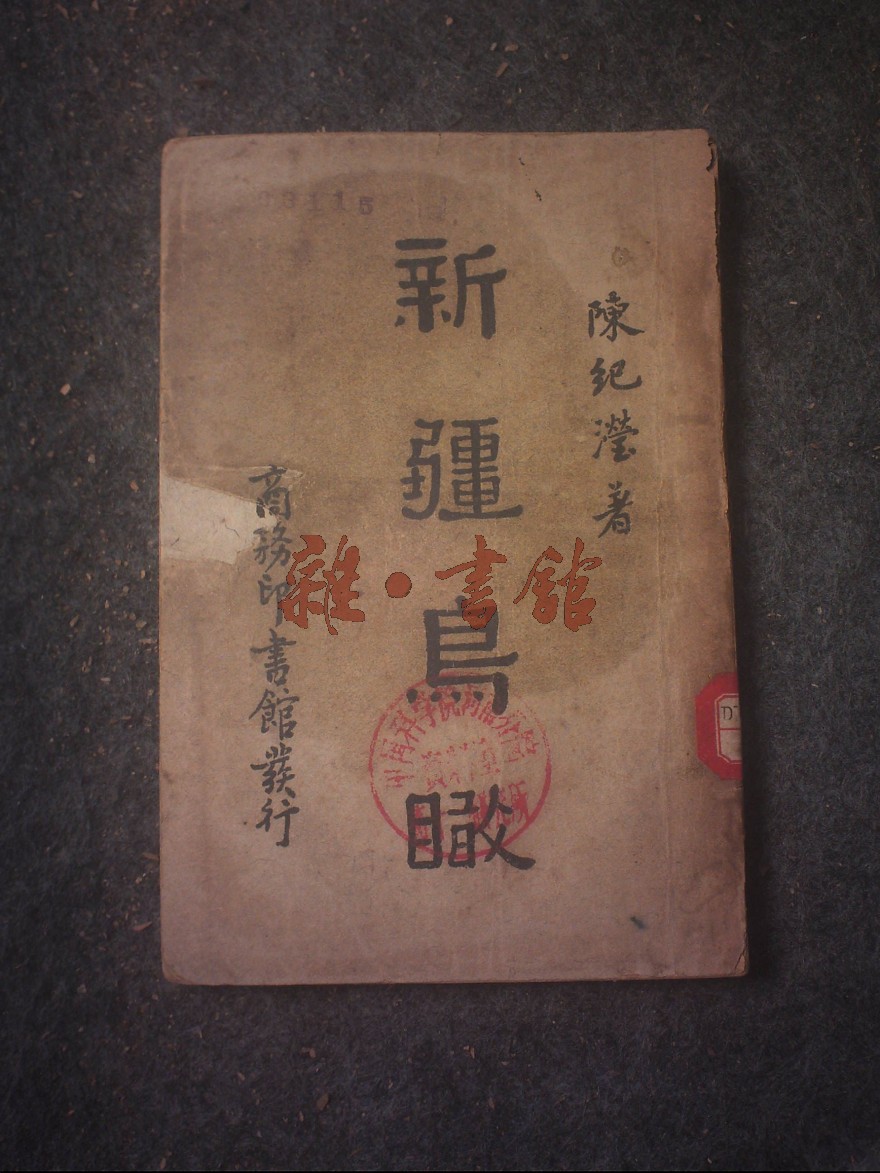 陳紀瀅著
新疆鳥瞰
商務印書館發行
雜·書館